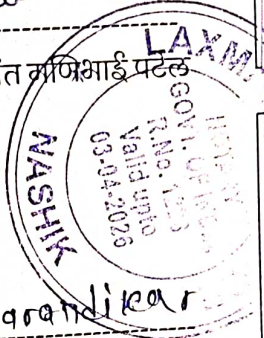 त मणिभाई पटेल
LAXM
GOVT. OF
R.No. 1
Valid upto
03-04-2026
NASHIK
arandikar